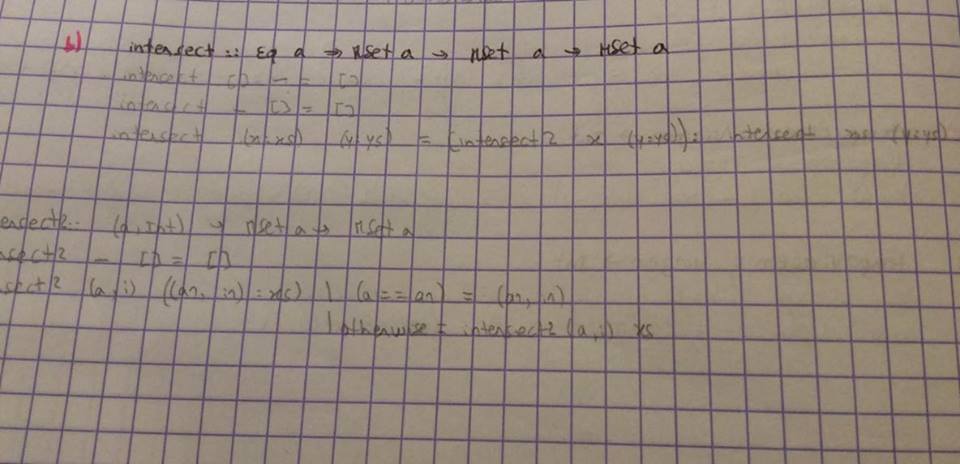 b) intersect :: Eq a → Mset a → Mset a → Mset a
intersect [] _ = []
intersect _ [] = []
intersect (x:xs) (y:ys) = (intersect2 x (y:ys)) : intersect xs (y:ys)
ersect2:: (a, Int) → Mset a → Mset a
rsect2 _ [] = []
sect2 (a, i) ((an, in) : xs) | (a == an) = (an, in)
| otherwise = intersect2 (a, i) xs